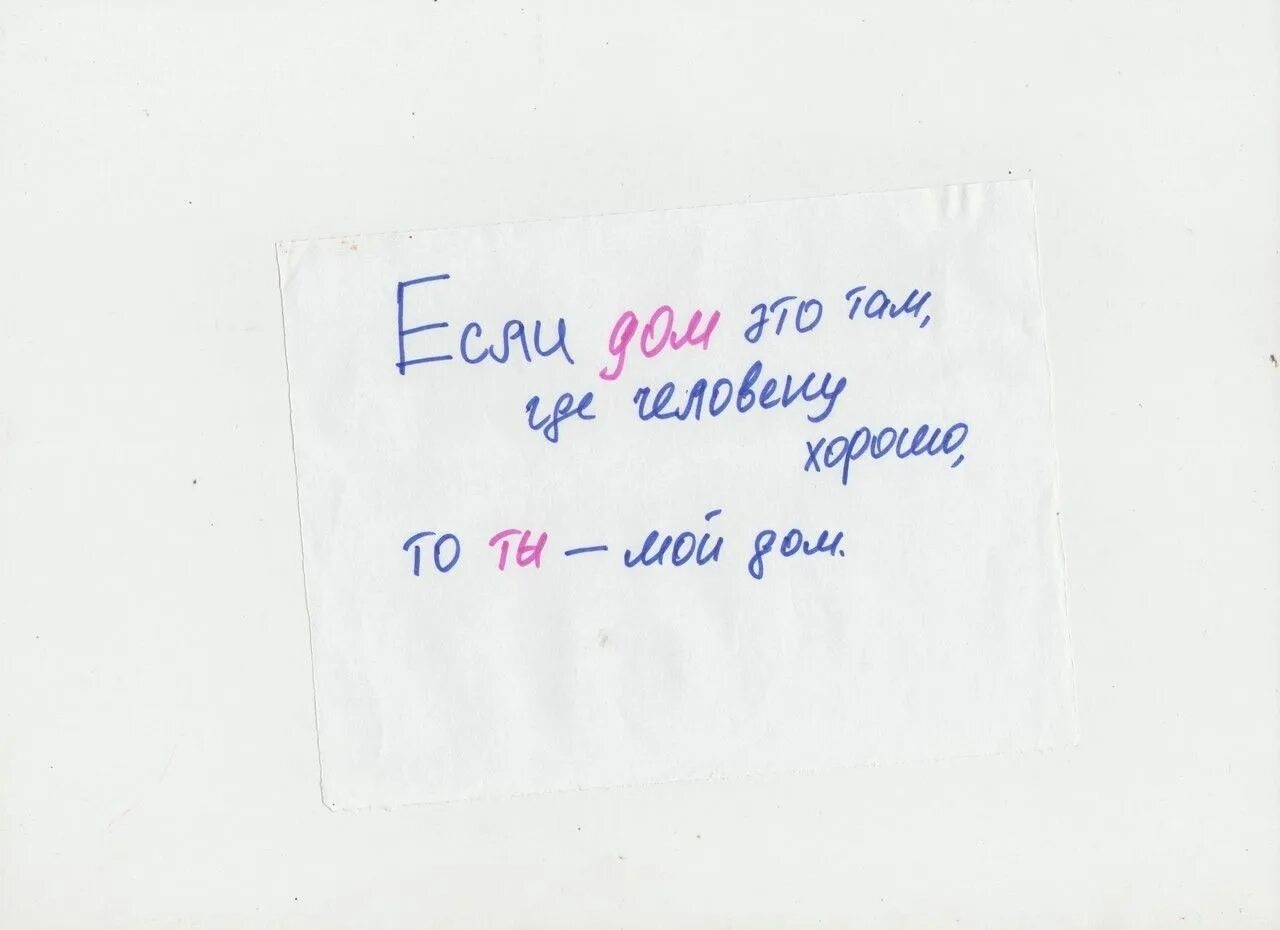 Если дом это там,
где человеку
хорошо,
то ты — мой дом.